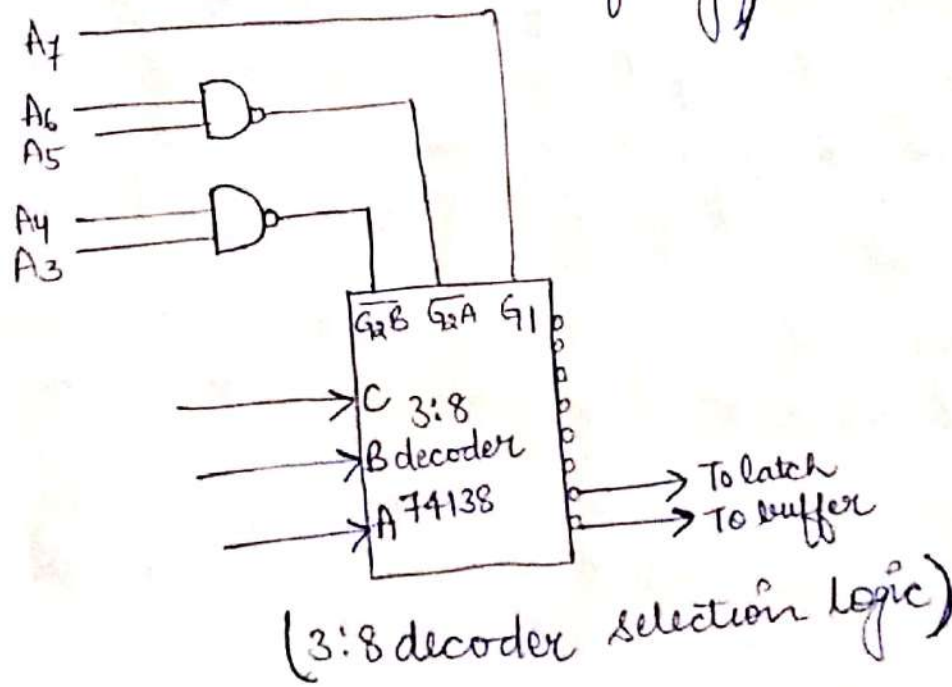 A7
A6
A5
A4
A3
G2B G2A G1
C 3:8
B decoder
A 74138
To latch
To buffer
(3:8 decoder selection logic)